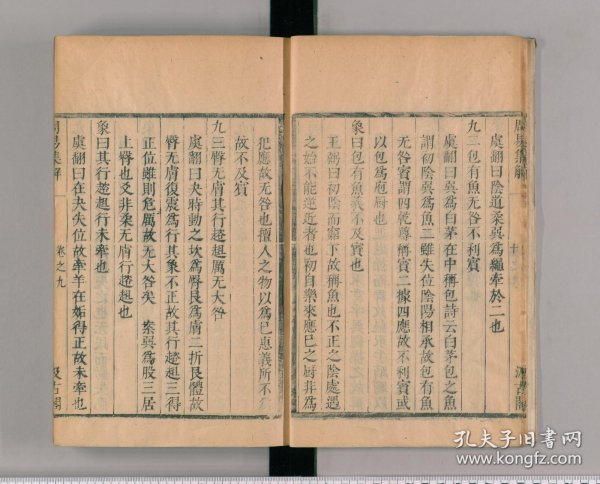 周易集解
虞翻曰陰道柔巽為繩牽於二也
九二包有魚无咎不利賓
虞翻曰巽為白茅在中稱包詩云白茅包之魚
謂初陰巽為魚二雖失位陰陽相承故包有魚
无咎賓謂四乾尊稱賓二據四應故不利賓或
以包為庖廚也
象曰包有魚義不及賓也
王弼曰初陰而窮下故稱魚也不正之陰處遇
之始不能逆近者也初自樂來應己之廚非為
犯應故无咎也擅人之物以為己惠義所不
故不及賓
九三臀无膚其行趑趄厲无大咎
虞翻曰夬時動之坎為臀艮為膚二折艮體故
臀无膚復震為行其象不正故其行趑趄三得
正位雖則危厲故无大咎矣 案巽為股三居
上臀也爻非柔无膚行趑趄也
象曰其行趑趄行未牽也
虞翻曰在夬失位故牽羊在姤得正故未牽也
周易集解
卷之九
汲古閣
孔夫子旧书网
www.kongfz.com